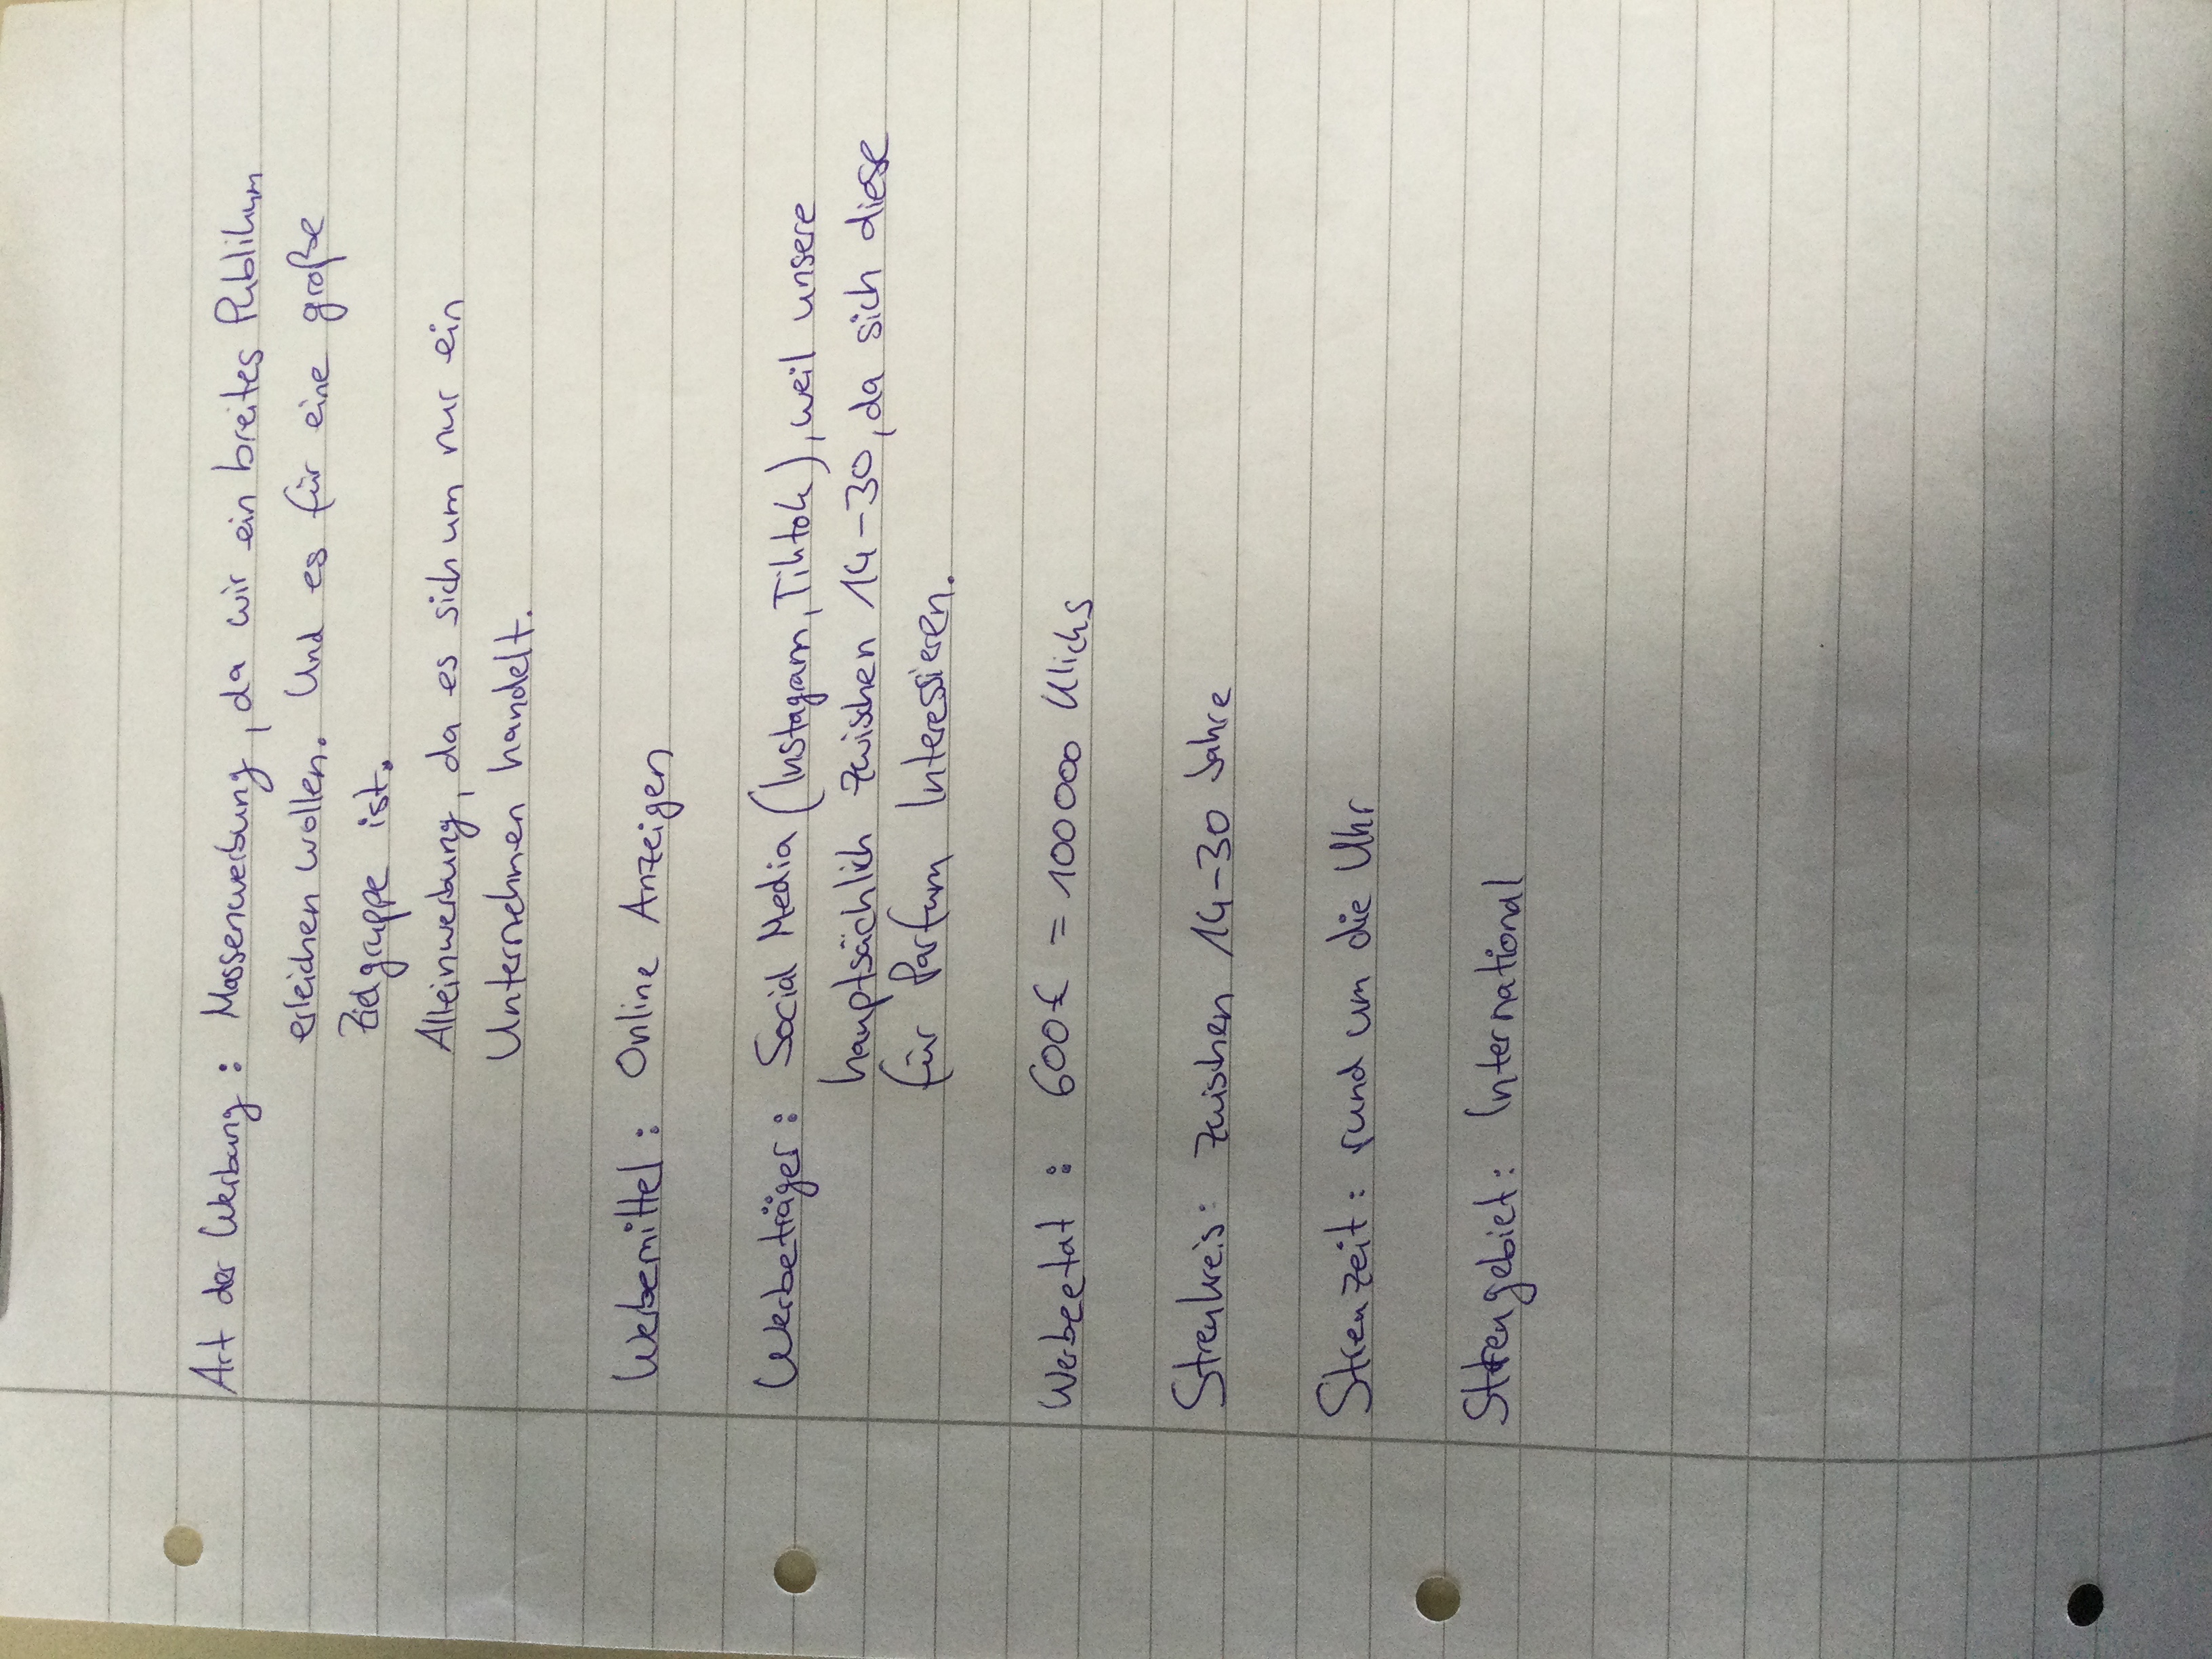 Art der Werbung: Massenwerbung, da wir ein breites Publikum
erleichen wollen. Und es für eine große
Zielgruppe ist.
Alleinwerbung, da es sich um nur ein
Unternehmen handelt.
Werbemittel: Online Anzeigen
Werbeträger: Social Media (Instagram, Tiktok), weil unsere
hauptsächlich zwischen 14-30, da sich diese
für Parfum Interessieren.
Werbeetat: 600€ = 100000 Klicks
Streukreis: zwishen 14-30 Jahre
Streuzeit: rund um die Uhr
Streugebiet: International